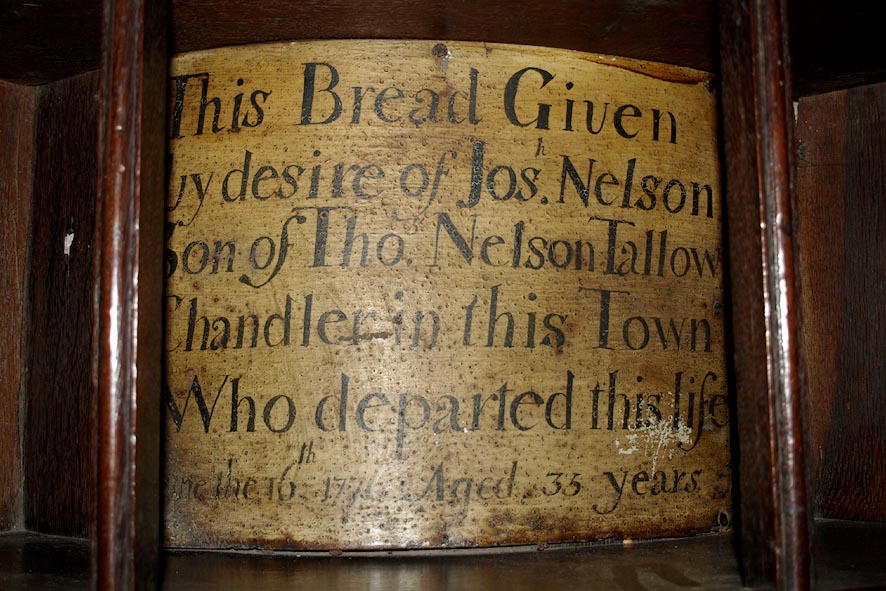 This Bread Given
by desire of Josʰ. Nelson
Son of Thoˢ. Nelson Tallow
Chandler in this Town
Who departed this life
June the 16ᵗʰ 1776 Aged 35 years.